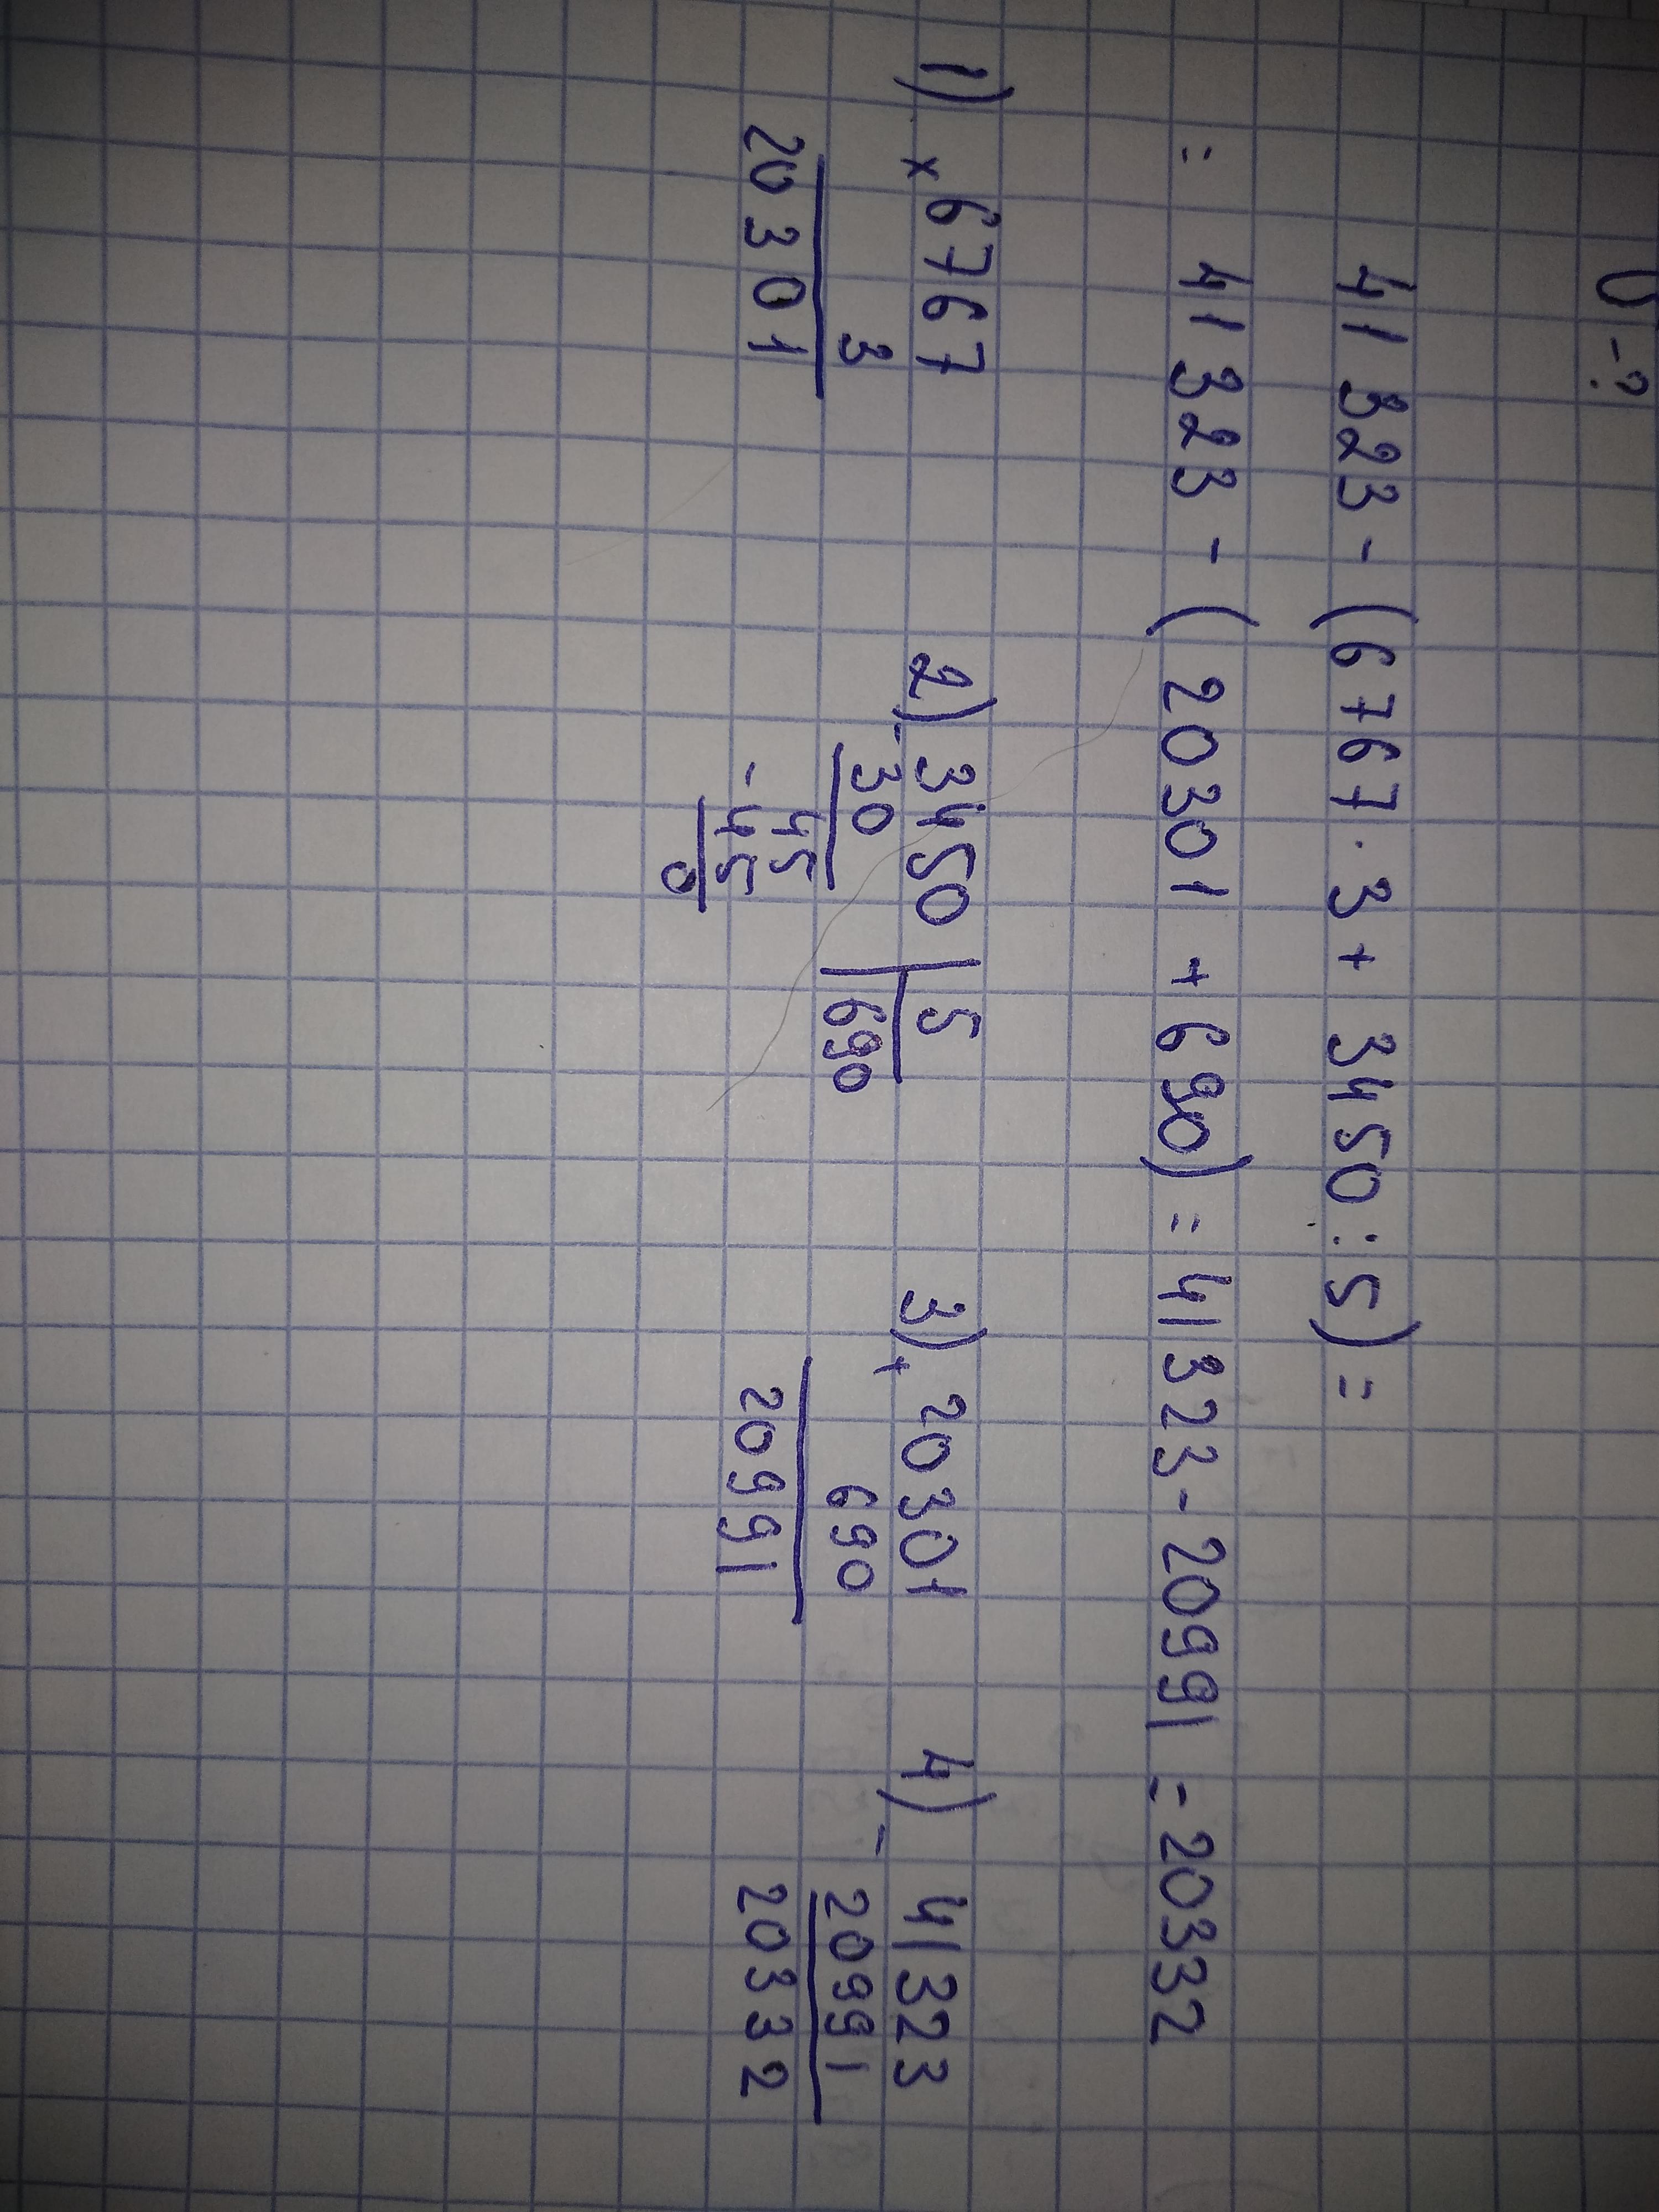 υ - ?
41 323 - (6767 · 3 + 3450 : 5) =
= 41 323 - (20301 + 690) = 41 323 - 20991 = 20332
1) × 6767
3
20301
2) - 3450 | 5
30 | 690
45
- 45
0
3) + 20301
690
20991
4) - 41323
20991
20332